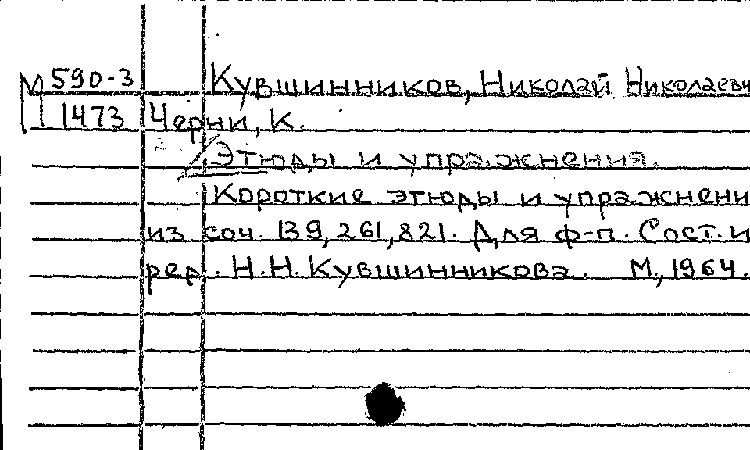 М 590-3 Кувшинников, Николай Николаевич
1473 Черни, К.
Этюды и упражнения.
Короткие этюды и упражнени
из соч. 139, 261, 821. Для ф-п. Сост. и
ред. Н.Н. Кувшинникова. М., 1964.